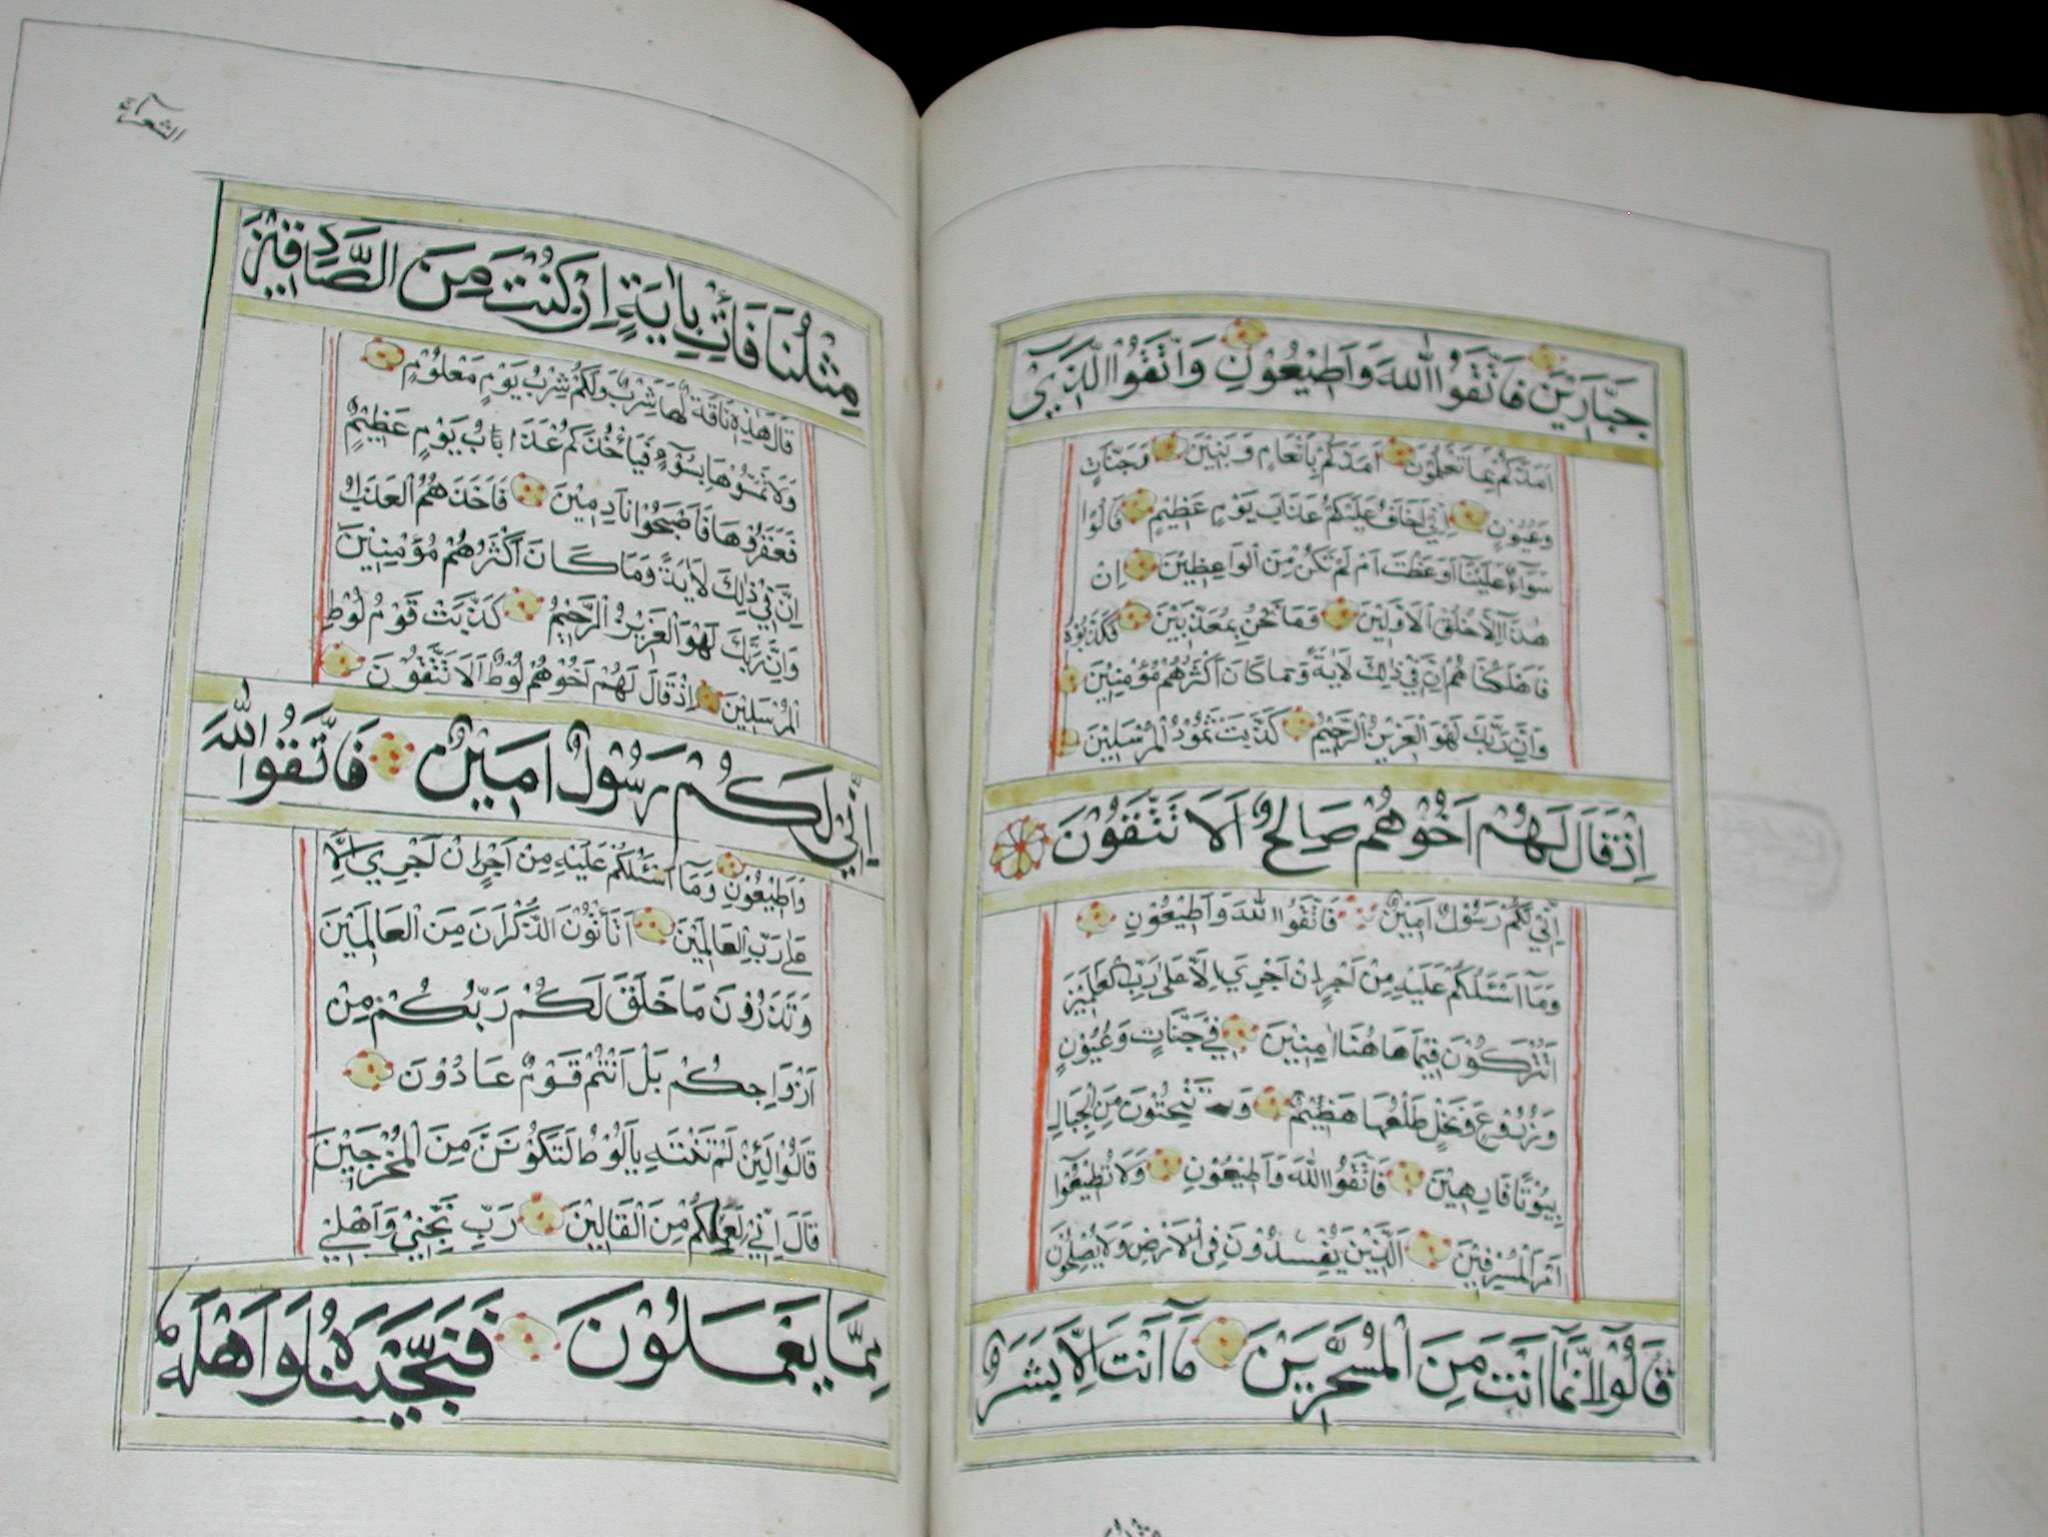 جَبَّارِيْنَ فَاتَّقُوا اللّٰهَ وَاَطِيْعُوْنِ وَاتَّقُوا الَّذِيْ
اَمَدَّكُمْ بِمَا تَعْلَمُوْنَ اَمَدَّكُمْ بِاَنْعَامٍ وَبَنِيْنَ وَجَنَّاتٍ
وَعُيُوْنٍ اِنِّيْ اَخَافُ عَلَيْكُمْ عَذَابَ يَوْمٍ عَظِيْمٍ قَالُوْا
سَوَآءٌ عَلَيْنَآ اَوَعَظْتَ اَمْ لَمْ تَكُنْ مِنَ الْوَاعِظِيْنَ اِنْ
هٰذَا اِلَّا خُلُقُ الْاَوَّلِيْنَ وَمَا نَحْنُ بِمُعَذَّبِيْنَ فَكَذَّبُوْهُ
فَاَهْلَكْنَاهُمْ اِنَّ فِيْ ذٰلِكَ لَاٰيَةً وَمَا كَانَ اَكْثَرُهُمْ مُؤْمِنِيْنَ
وَاِنَّ رَبَّكَ لَهُوَ الْعَزِيْزُ الرَّحِيْمُ كَذَّبَتْ ثَمُوْدُ الْمُرْسَلِيْنَ
اِذْ قَالَ لَهُمْ اَخُوْهُمْ صَالِحٌ اَلَا تَتَّقُوْنَ
اِنِّيْ لَكُمْ رَسُوْلٌ اَمِيْنٌ فَاتَّقُوا اللّٰهَ وَاَطِيْعُوْنِ
وَمَآ اَسْئَلُكُمْ عَلَيْهِ مِنْ اَجْرٍ اِنْ اَجْرِيَ اِلَّا عَلٰى رَبِّ الْعٰلَمِيْنَ
اَتُتْرَكُوْنَ فِيْمَا هَاهُنَا اٰمِنِيْنَ فِيْ جَنَّاتٍ وَعُيُوْنٍ
وَزُرُوْعٍ وَنَخْلٍ طَلْعُهَا هَضِيْمٌ وَتَنْحِتُوْنَ مِنَ الْجِبَالِ
بُيُوْتًا فَارِهِيْنَ فَاتَّقُوا اللّٰهَ وَاَطِيْعُوْنِ وَلَا تُطِيْعُوْٓا
اَمْرَ الْمُسْرِفِيْنَ اَلَّذِيْنَ يُفْسِدُوْنَ فِي الْاَرْضِ وَلَا يُصْلِحُوْنَ
قَالُوْٓا اِنَّمَآ اَنْتَ مِنَ الْمُسَحَّرِيْنَ مَآ اَنْتَ اِلَّا بَشَرٌ
الشعرآء
مِثْلُنَا فَأْتِ بِاٰيَةٍ اِنْ كُنْتَ مِنَ الصَّادِقِيْنَ
قَالَ هٰذِهِ نَاقَةٌ لَهَا شِرْبٌ وَلَكُمْ شِرْبُ يَوْمٍ مَعْلُوْمٍ
وَلَا تَمَسُّوْهَا بِسُوْٓءٍ فَيَأْخُذَكُمْ عَذَابُ يَوْمٍ عَظِيْمٍ
فَعَقَرُوْهَا فَاَصْبَحُوْا نَادِمِيْنَ فَاَخَذَهُمُ الْعَذَابُ
اِنَّ فِيْ ذٰلِكَ لَاٰيَةً وَمَا كَانَ اَكْثَرُهُمْ مُؤْمِنِيْنَ
وَاِنَّ رَبَّكَ لَهُوَ الْعَزِيْزُ الرَّحِيْمُ كَذَّبَتْ قَوْمُ لُوْطٍ
الْمُرْسَلِيْنَ اِذْ قَالَ لَهُمْ اَخُوْهُمْ لُوْطٌ اَلَا تَتَّقُوْنَ
اِنِّيْ لَكُمْ رَسُوْلٌ اَمِيْنٌ فَاتَّقُوا اللّٰهَ
وَاَطِيْعُوْنِ وَمَآ اَسْئَلُكُمْ عَلَيْهِ مِنْ اَجْرٍ اِنْ اَجْرِيَ اِلَّا
عَلٰى رَبِّ الْعَالَمِيْنَ اَتَأْتُوْنَ الذُّكْرَانَ مِنَ الْعَالَمِيْنَ
وَتَذَرُوْنَ مَا خَلَقَ لَكُمْ رَبُّكُمْ مِنْ
اَزْوَاجِكُمْ بَلْ اَنْتُمْ قَوْمٌ عَادُوْنَ
قَالُوْا لَئِنْ لَمْ تَنْتَهِ يَالُوْطُ لَتَكُوْنَنَّ مِنَ الْمُخْرَجِيْنَ
قَالَ اِنِّيْ لِعَمَلِكُمْ مِنَ الْقَالِيْنَ رَبِّ نَجِّنِيْ وَاَهْلِيْ
مِمَّا يَعْمَلُوْنَ فَنَجَّيْنَاهُ وَاَهْلَهُ